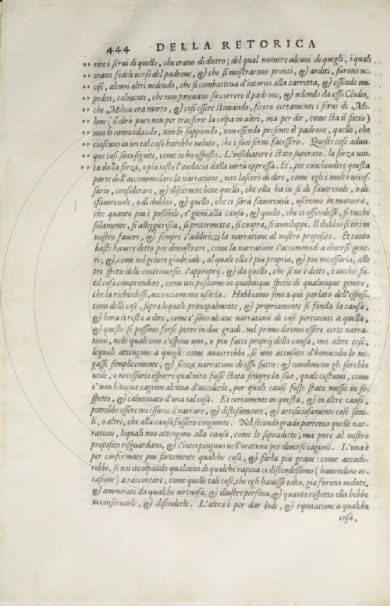 444 DELLA RETORICA
" rire i serui di quello, che erano di dietro; del qual numero alcuni di quegli, i quali
" erano fideli uerso del padrone, & che si mostrarono pronti, & arditi, furono uc-
" cisi, alcuni altri uedendo, che si combatteua d'intorno alla carretta, & essendo im-
" pediti, talmente, che non poteuano soccorrer il padrone, & udendo da esso Clodio,
" che Milone era morto, & così essere stimando, fecero certamente i serui di Mi-
" lone (il dirò pure non per trasferir la colpa in altri, ma per dir, come sta il fatto)
" non lo comandando, non lo sappendo, non essendo presente il padrone, quello, che
" ciascuno in un tal caso harebbe uoluto, che i suoi serui facessero. Queste cose adun-
" que così sono seguite, come io ho esposto. L'insidiatore è stato superato. la forza uin-
" ta dalla forza, o più tosto l'audacia dalla uirtù oppressa. Et, per conchiudere questa
parte dell'accommodare la narratione, non lascerò di dire, come egli è molto neces-
sario, considerare, & discernere bene quello, che ella ha in se di fauoreuole, o di-
sfauoreuole, o di dubbio, & quello, che ci sarà fauoreuole, useremo in maniera,
che quanto più è possibile, e' gioui alla causa, & quello, che ci offendesse, si tocchi
, si alleggerisca, si pretermetta, si cuopra, si auuiluppi. Il dubbio si tiri in
nostro fauore, & sempre s'addirizzi la narratione al nostro proposito. Et tanto
basti hauer detto per dimostrare, come la narratione s'accommodi a diuersi gene-
ri; &, come nel genere giudiciale, al quale ella è più propria, & più necessaria, alle
tre spetie delle controuersie s'approprij. & da quello, che si ne è detto, è anche fa-
cil cosa comprendere, come noi possiamo in qualunque spetie di qualunque genere,
che la richiedesse, acconciamente usarla. Habbiamo fino a quì parlato dell'esposi-
tione delle cose, sopra lequali principalmente, & propriamente si fonda la causa,
& hora ci resta a dire, come e' sono alcune narrationi di cose pertinenti a quella,
& queste si possono farsi porre in due gradi. nel primo diremo essere certe narra-
tioni, nelle quali non s'espone uno, o più fatti proprij della causa, ma altre cose,
lequali attengono a quegli: come auuerrebbe, se uno accusato d'homicidio lo ne-
gasse semplicemente, & senza narratione di esso fatto: & nondimeno gli sarebbe
utile, o necessario esporre qual uita fusse stata sempre la sua, quali costumi, come
e' non haueua cagione alcuna d'ucciderlo, per quali cause fusse stato messo in so-
spetto, & calunniato d'una tal cosa. Et certamente in questa, & in altre cause,
potrebbe essere necessario il narrare, & distesamente, & artificiosamente cose simi-
li, o altre, che alla causa fussero congiunte. Nel secondo grado porremo quelle nar-
rationi, lequali non attengono alla causa, come le sopradette, ma pure al nostro
proposito risguardano, & s'interpongono nell'oratione per diuerse cagioni. L'una è
per confirmare più fortemente qualche cosa, & farla più graue: come accade-
rebbe, se noi incolpando qualcuno di qualche rapina ci distendessimo (hauendone oc-
casione) a raccontare, come quelle tali cose, che egli hauesse tolto, già furono uedute,
& ammirate da qualche uirtuosa, & illustre persona, & quanto rispetto ella hebbe
in conseruarle, & difenderle. L'altra è per dar lode, & riputatione a qualche
cosa,